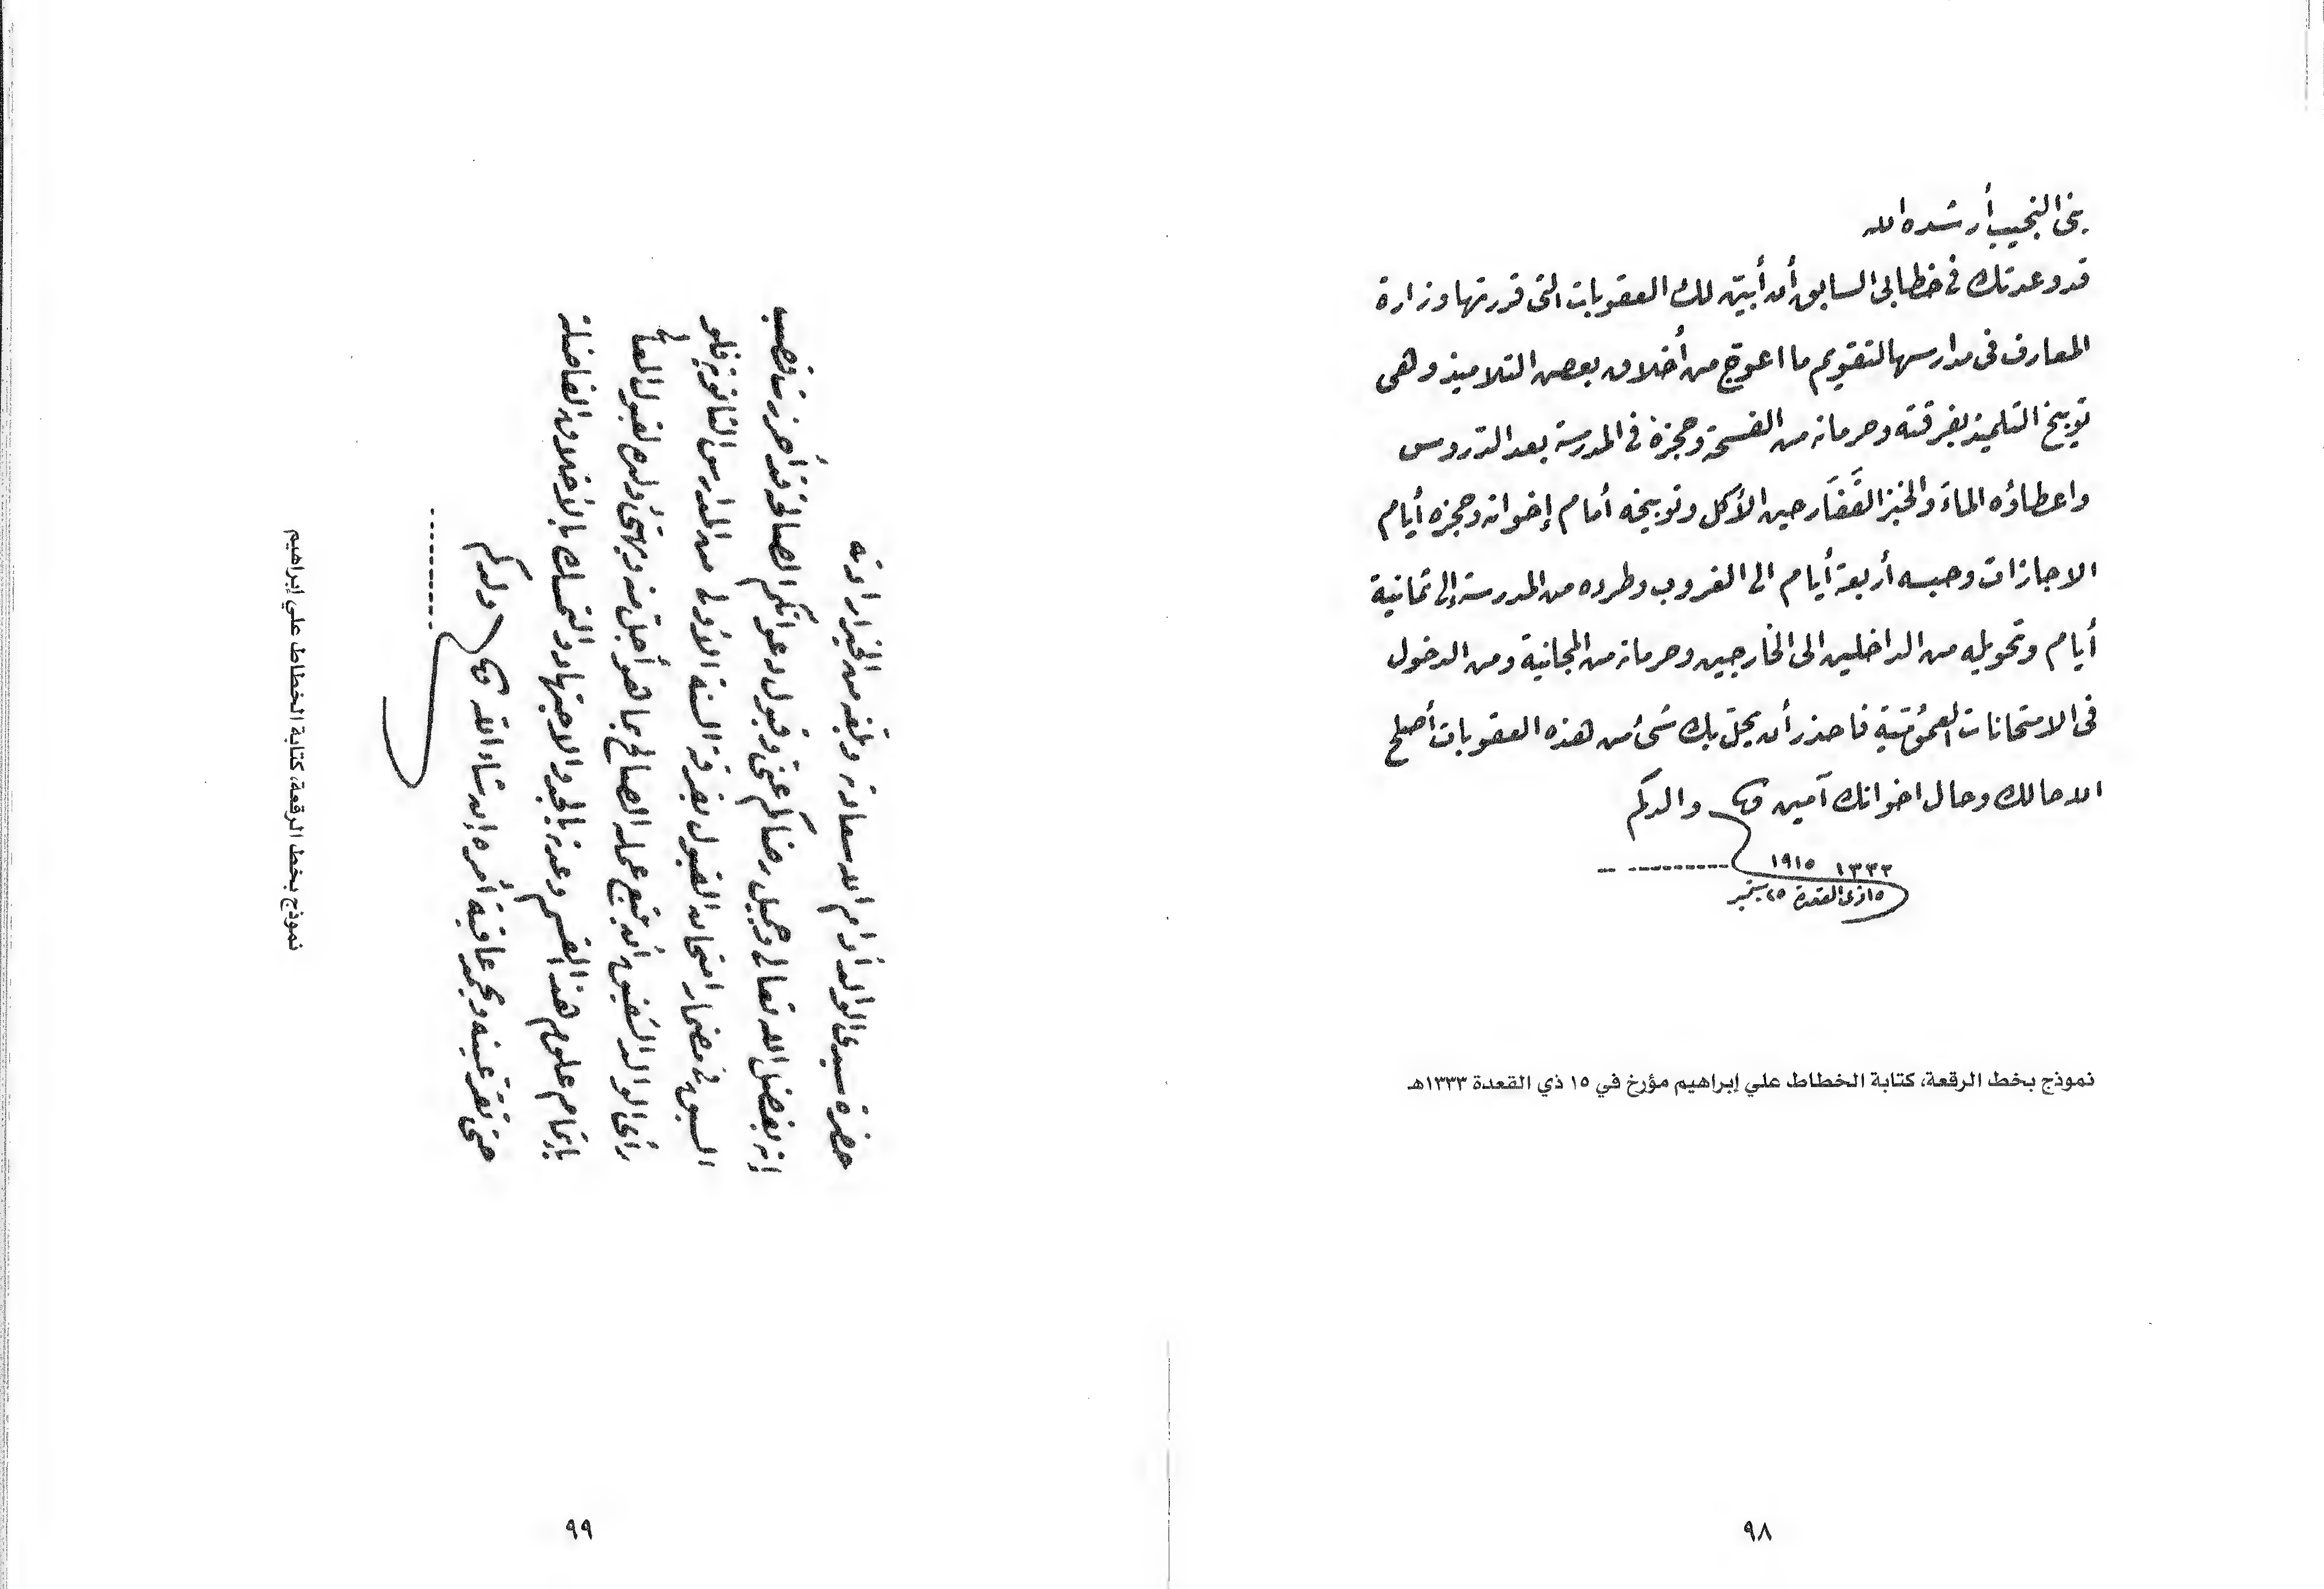 بني النجيب أرشده الله
قد وعدتك في خطابي السابق أن أبيّن لك العقوبات التي قررتها وزارة
المعارف في مدارسها لتقويم ما اعوجّ من أخلاق بعض التلاميذ وهي
توبيخ التلميذ بفرقته وحرمانه من الفسحة وحجزه في المدرسة بعد الدروس
واعطاؤه الماءَ والخبز القَفَار حين الأكل وتوبيخه أمام إخوانه وحجزه أيام
الاجازات وحبسه أربعة أيام الى الغروب وطرده من المدرسة إلى ثمانية
أيام وتحويله من الداخلين الى الخارجين وحرمانه من المجانية ومن الدخول
في الامتحانات العمومية فاحذر أن يحلّ بك شئ من هذه العقوبات أصلح
الله حالك وحال اخوانك آمين والدكم
١٣٣٣ ١٩١٥
١٥ ذي القعدة ٢٥ سبتمبر
نموذج بخط الرقعة، كتابة الخطاط علي إبراهيم مؤرخ في ١٥ ذي القعدة ١٣٣٣هـ
٩٨
حضرة سيدي الوالد أدام الله سعادته وبلغه من الخير ارادته
إنه بفضل الله تعالى وجميل رضاكم عني وقبول دعواتكم الصالحة قد أحرزت قصب
السبق في مضمار امتحان القبول بفرقة السنة الأولى من المدارس الثانوية فلو
رأى الوالد الشفيق أن يتبع عمله الصالح بما هو أجلّ منه ويهيئ ولده لقبول
بإتمام علوم هذا القسم وعدته بالجد والاجتهاد والتمسك بالأخلاق الفاضلة
حتى تقر عينه ويحمد عاقبة أمره إن شاء الله ولدكم
نموذج بخط الرقعة، كتابة الخطاط علي إبراهيم
٩٩